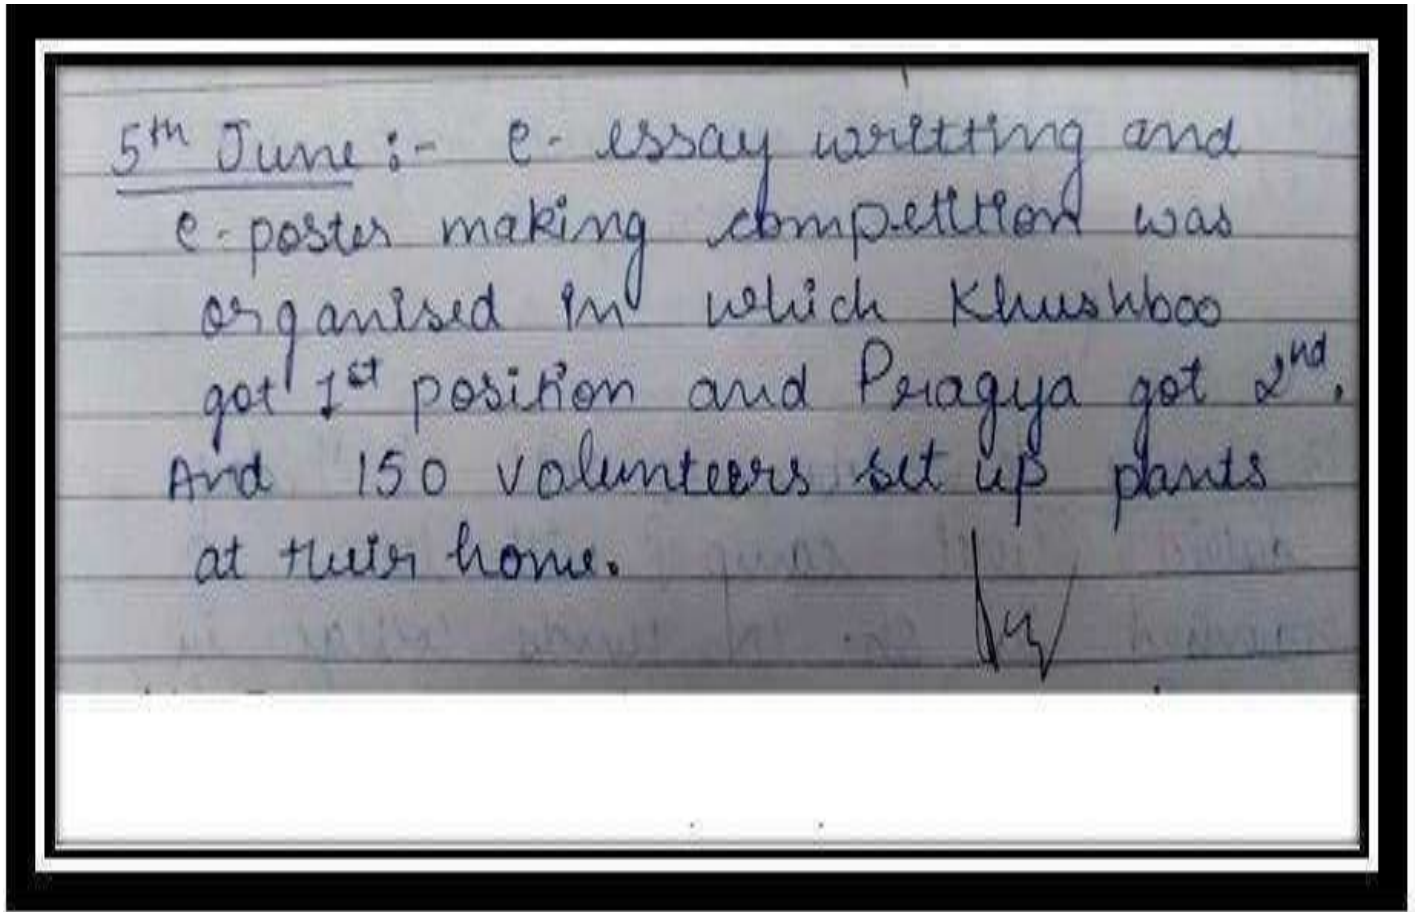 5th June :- e- essay writting and
e-poster making competition was
organised in which Khushboo
got 1st position and Pragya got 2nd.
And 150 volunteers set up pants
at their home.